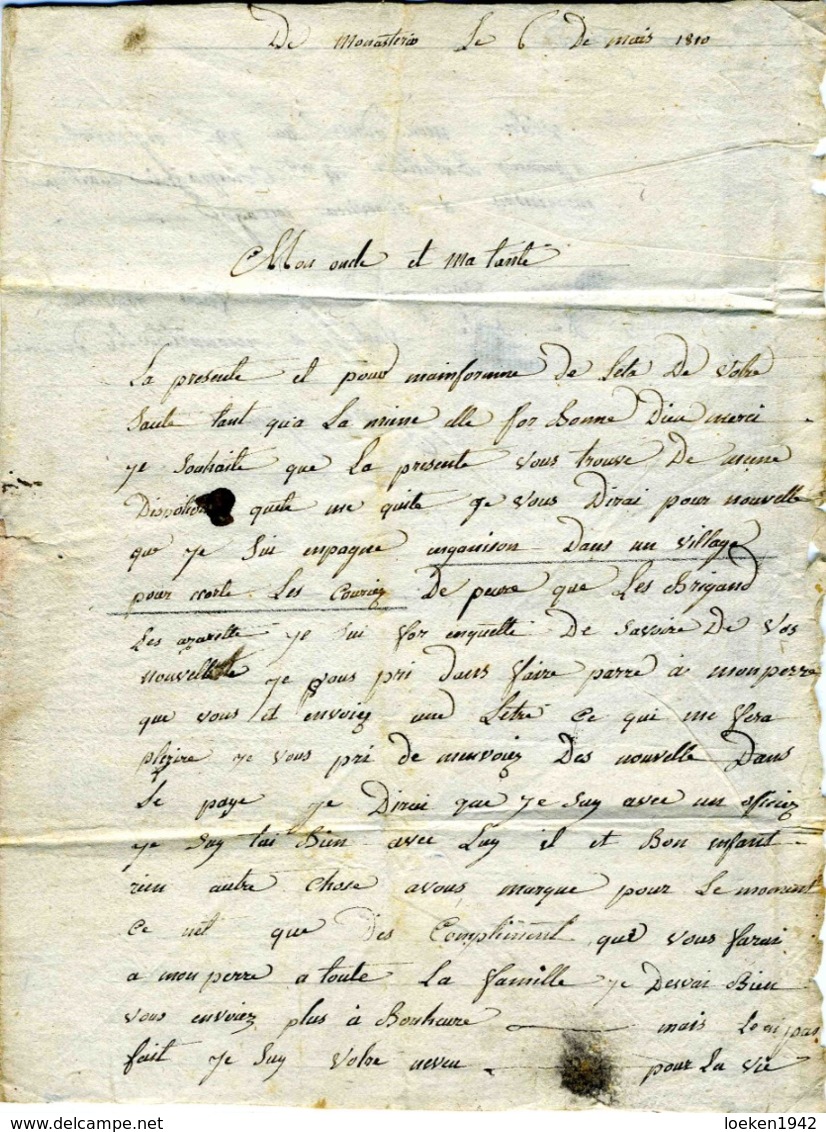 De Monasterio Le 6 De mais 1810
Mon oncle et ma tante
La presente et pour mainformme De Leta De Votre
Sante tant qu'a La mine elle for Bonne Dieu merci
Je Souhaite que La presente vous trouve De meme
quelle me quite Je vous Dirai pour nouvelle
que Je Sui enpagne engarnison Dans un village
pour corte Les Couriez De peure que Les Brigand
Les azarette Je Sui for enquette De Savoire De Vos
nouvelle Je vous pri Dans faire parre à mon perre
que vous et envoiez une Letre Ce qui me fera
plezire Je vous pri de menvoiez Des nouvelle Dans
Le paye Je Dirai que Je Suy avec un officiez
Je Suy tai Bien avec Luy il et Bon enfant
rien autre Chose avous marque pour Le moment
Ce net que Des Compliment que vous farai
a mon perre a toute La famille Je Desvai Bien
vous envoiez plus à Bonheure mais Le ai pas
fait Je Suy Votre neveu pour La vie
loeken1942